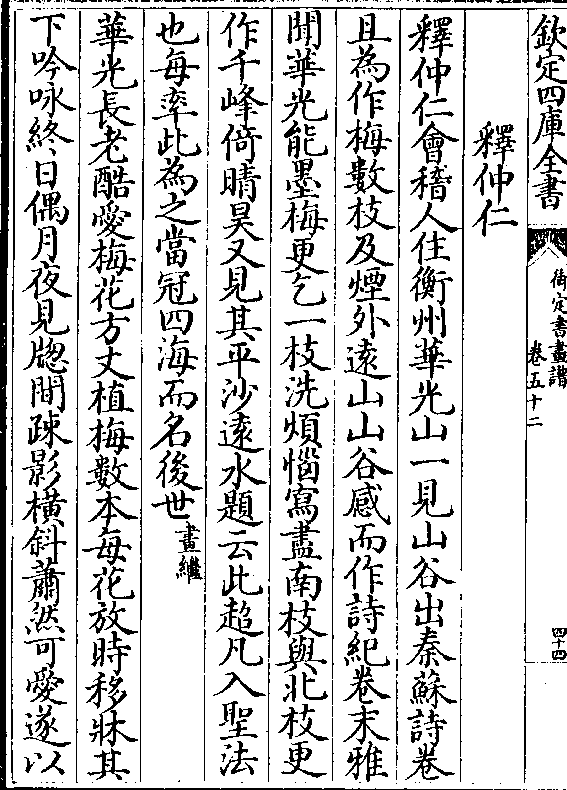 欽定四庫全書
御定書畫譜
卷五十二
四十四
釋仲仁
釋仲仁會稽人住衡州華光山一見山谷出秦蘇詩卷
且為作梅數枝及煙外遠山山谷感而作詩紀卷末雅
聞華光能墨梅更乞一枝洗煩惱寫盡南枝與北枝更
作千峰倚晴昊又見其平沙遠水題云此超凡入聖法
也每率此為之當冠四海而名後世畫繼
華光長老酷愛梅花方丈植梅數本每花放時移牀其
下吟咏終日偶月夜見牕間疎影橫斜蕭然可愛遂以